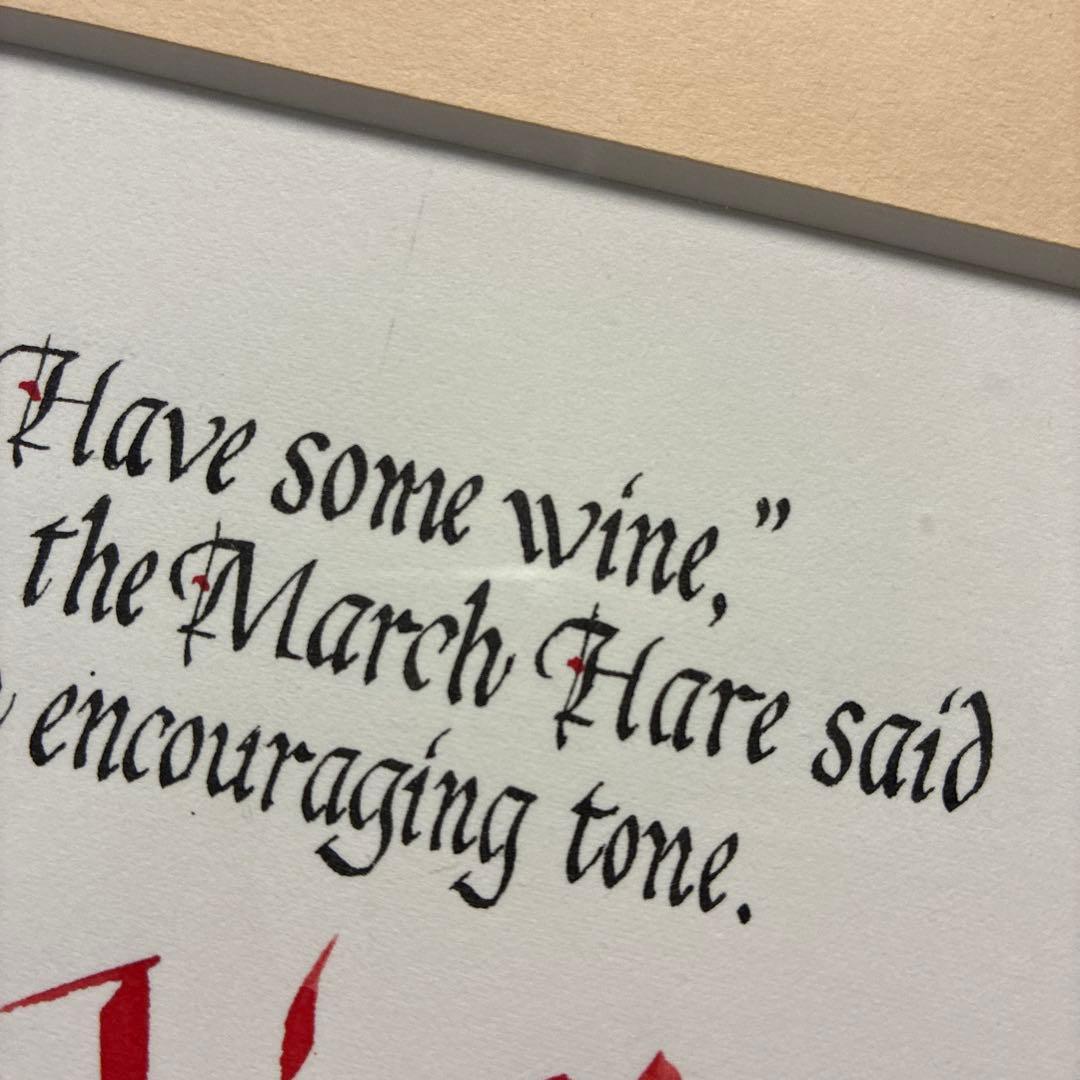 Have some wine,”
the March Hare said
encouraging tone.